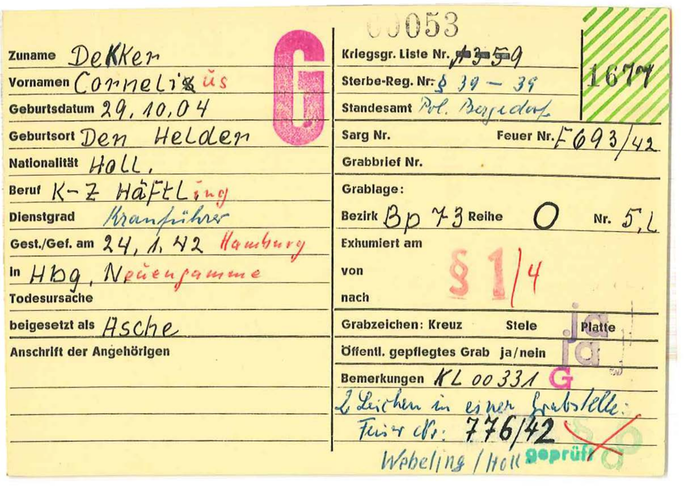 60053
Zuname Dekker
Vornamen Cornelius
Geburtsdatum 29.10.04
Geburtsort Den Helder
Nationalität Holl.
Beruf K-Z Häftling
Dienstgrad Kranführer
Gest./Gef. am 24.1.42 Hamburg
in Hbg, Neuengamme
Todesursache
beigesetzt als Asche
Anschrift der Angehörigen
G
Kriegsgr. Liste Nr. 1359
Sterbe-Reg. Nr: § 39 - 39
Standesamt Pol. Bergedorf
1677
Sarg Nr. Feuer Nr. F 693/42
Grabbrief Nr.
Grablage:
Bezirk Bp 73 Reihe O Nr. 5, L
Exhumiert am
von
nach
§ 1/4
Grabzeichen: Kreuz Stele Platte ja
Öffentl. gepflegtes Grab ja/nein ja
Bemerkungen KL 00331 G
2 Leichen in einer Grabstelle:
Feuer Nr: 776/42
Webeling / Holl
geprüft